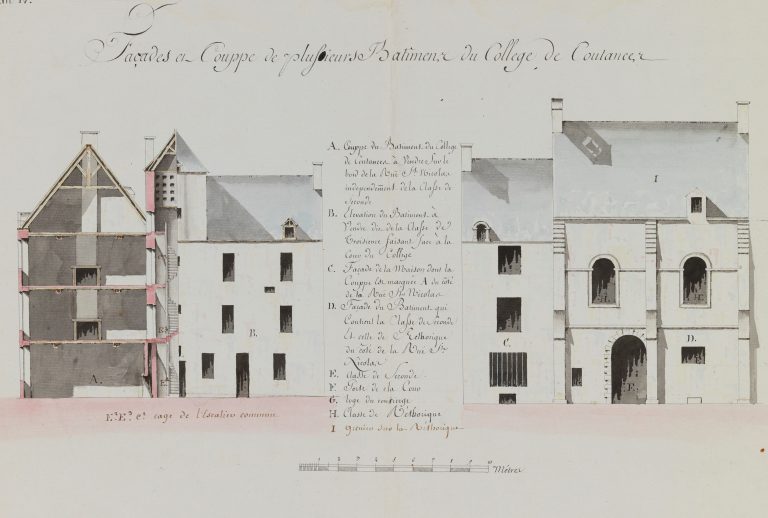 Façades et Couppe de plusieurs Batimens du College de Coutances
A. Couppe du Batiment du College
de Coutances à Vendre sur le
bord de la Rüe St. Nicolas
independement de la Classe de
Seconde
B. Elevation du Batiment à
Vendre dit de la Classe de
Troisieme faisant face à la
Cour du College
C. Façade de la Maison dont la
Couppe Est marquée A du côté
de la Rüe St. Nicolas
D. Façade du Batiment qui
Contient la Classe de Seconde
Et celle de Rethorique
du côté de la Rüe St.
Nicolas
E. Classe de Seconde
F. Porte de la Cour
G. loge du concierge
H. Classe de Réthorique
I Grenier sur la Réthorique
I
H
B.
C.
D.
A.
F.
cage de l'Escalier commun
1 2 3 4 5 6 7 8 9 10
Mètres